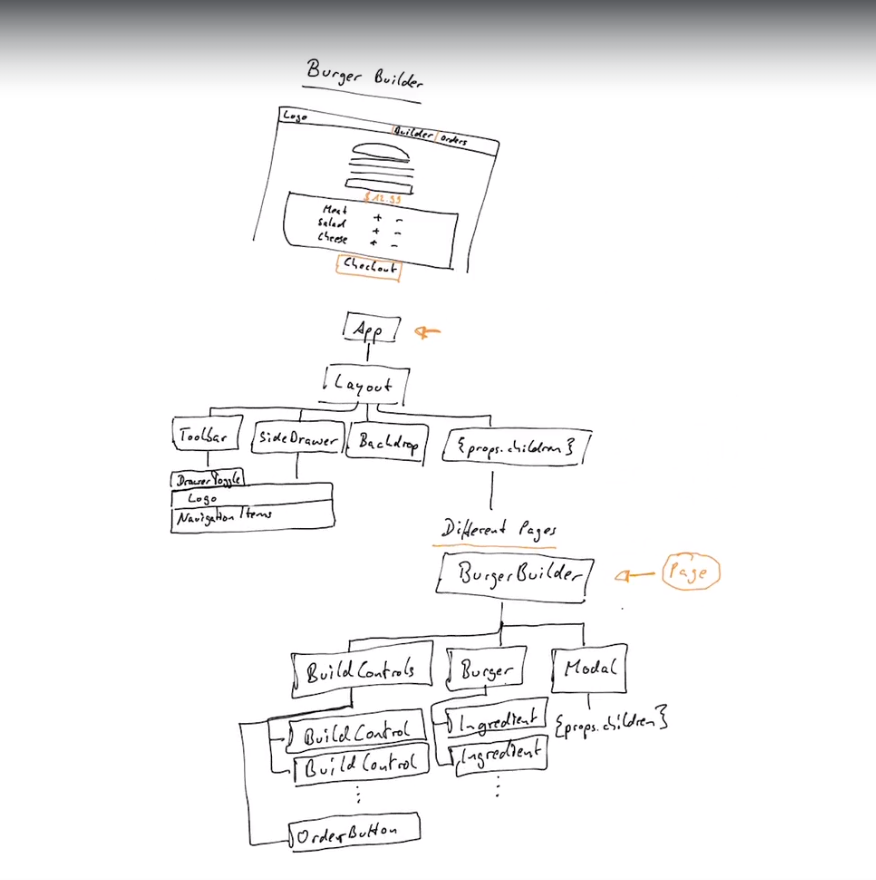 Burger Builder
Logo
Builder orders
$12.99
Meat + -
Salad + -
Cheese + -
Checkout
App
Layout
Toolbar SideDrawer Backdrop {props.children}
DrawerToggle
Logo
Navigation Items
Different Pages
BurgerBuilder Page
BuildControls Burger Modal
BuildControl Ingredient {props.children}
BuildControl Ingredient
OrderButton